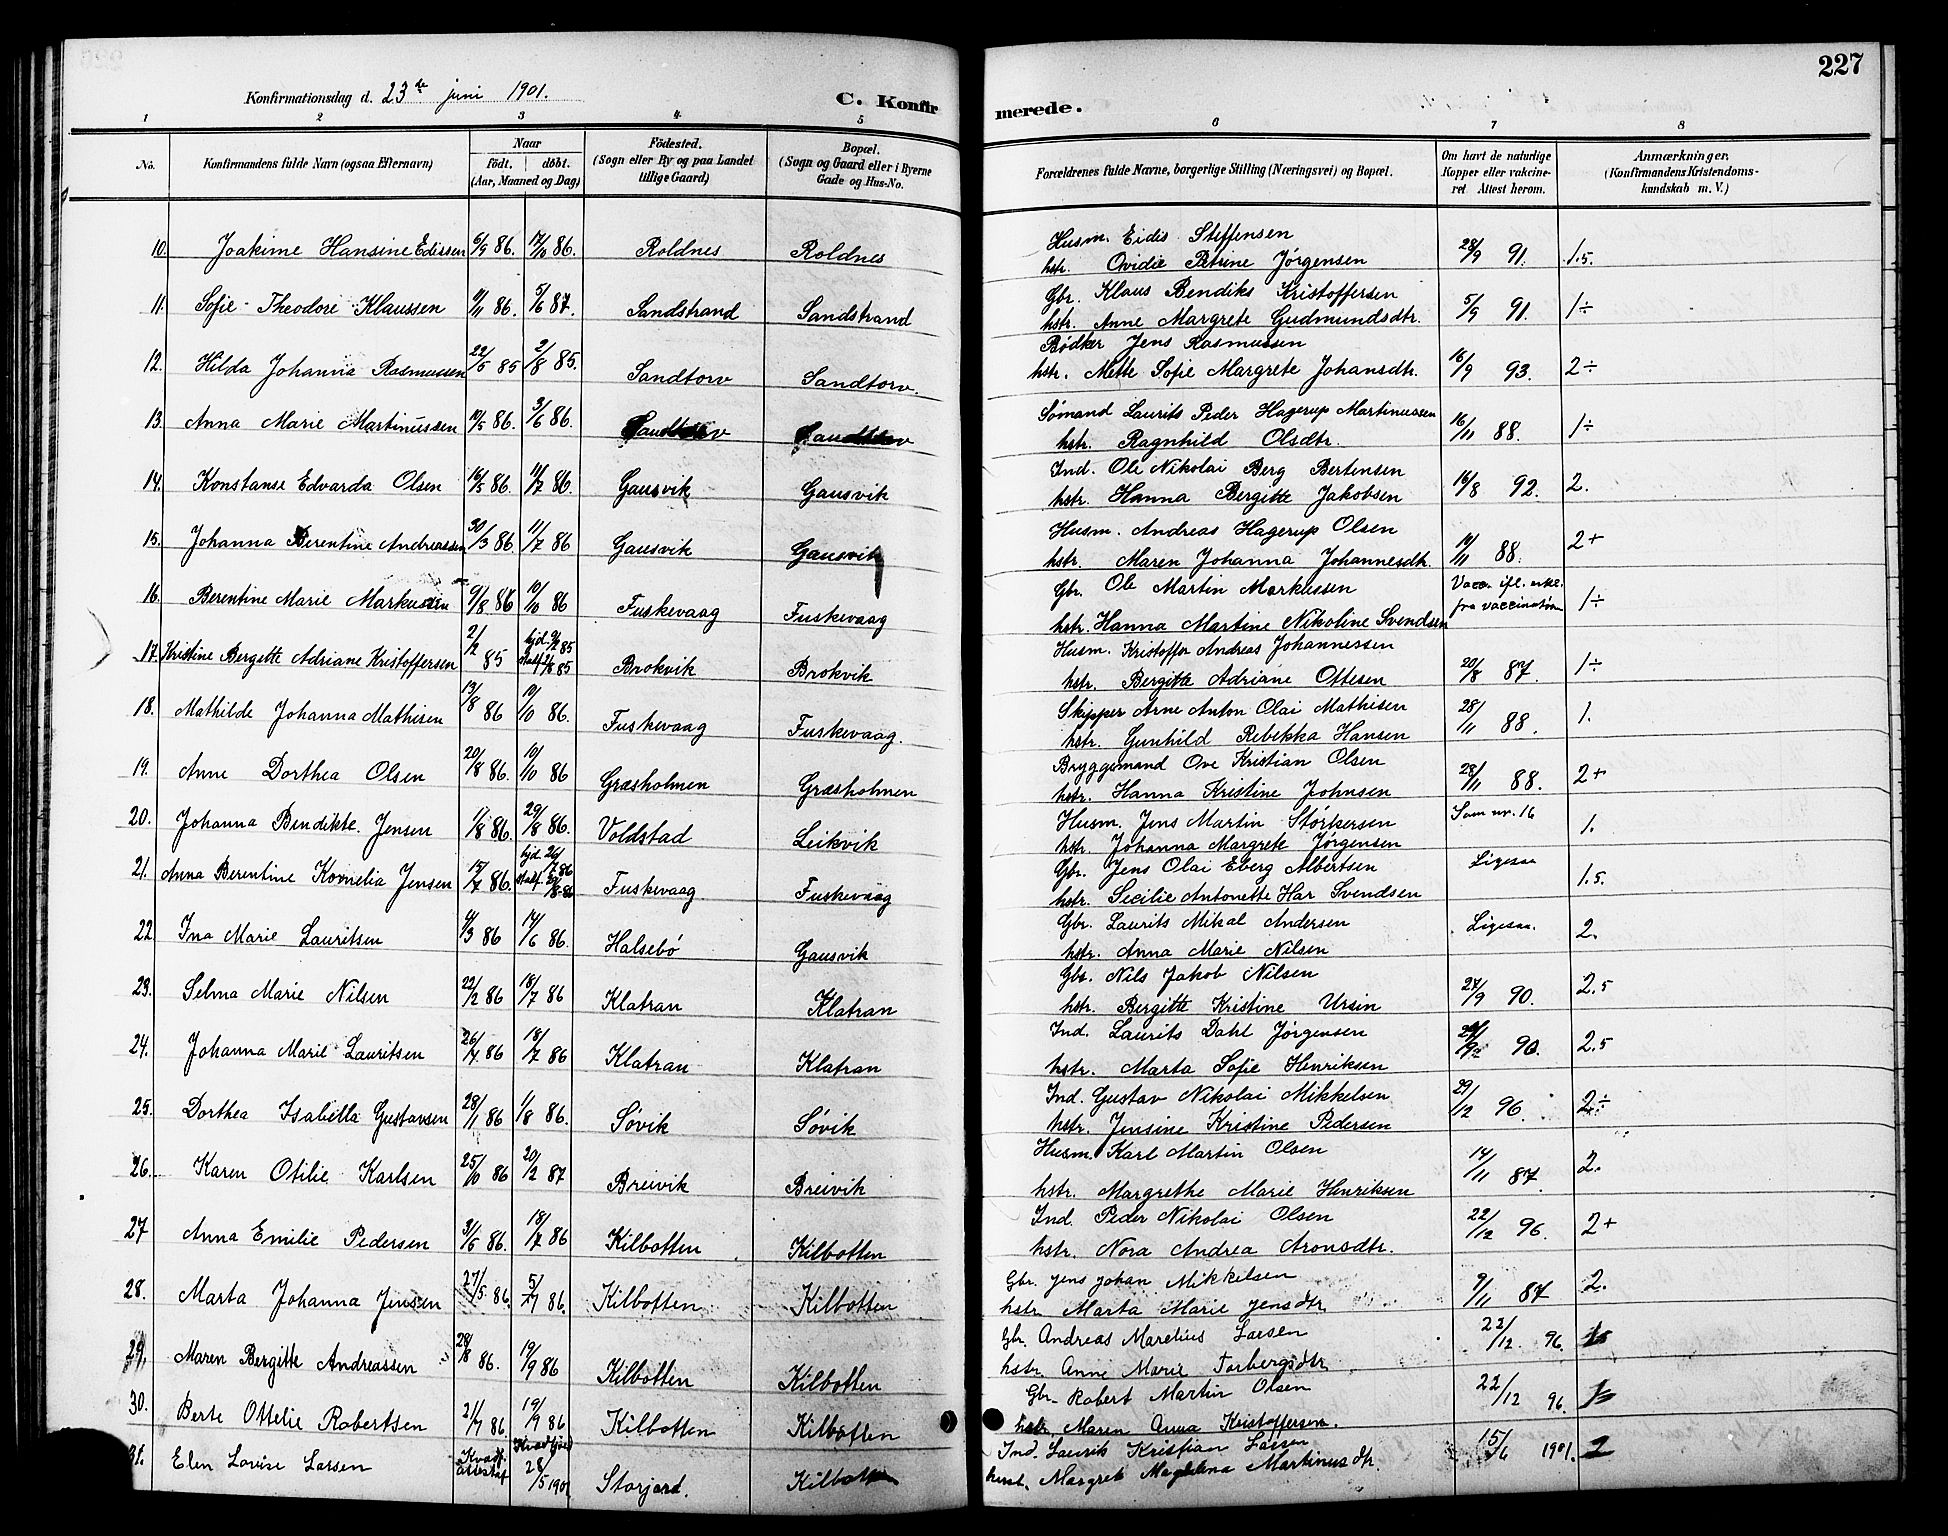 227
Konfirmationsdag d. 23de juni 1901.
C. Konfirmerede.
1 2 3 4 5 6 7 8
No. Konfirmandens fulde Navn (ogsaa Efternavn) Naar født. døbt. (Aar, Maaned og Dag) Födested. (Sogn eller By og paa Landet tillige Gaard) Bopæl. (Sogn og Gaard eller i Byerne Gade og Hus-No. Forældrenes fulde Navne, borgerlige Stilling (Næringsvei) og Bopæl. Om havt de naturlige Kopper eller vakcineret. Attest herom. Anmærkninger. (Konfirmandens Kristendomskundskab m. V.)
10. Joakime Hansine Edissen 6/9 86. 17/10 86. Roldnes Roldnes Husm. Eidis Steffensen 28/9 91. 1.5.
hstr. Ovidie Petrine Jørgensen
11. Sofie Theodore Klaussen 11/11 86. 5/6 87. Sandstrand Sandstrand Gbr. Klaus Bendiks Kristoffersen 5/9 91. 1÷
hstr. Anne Margrete Gudmundsdtr.
12. Hilda Johanna Rasmussen 22/5 85 2/8 85. Sandtorv Sandtorv. Bødker Jens Rasmussen 16/9 93. 2÷
hstr. Mette Sofie Margrete Johansdtr.
13. Anna Marie Martinussen 10/5 86. 3/6 86. Sandtorv Sandtorv Sømand Laurits Peder Hagerup Martinussen 16/11 88. 1÷
hstr. Ragnhild Olsdtr.
14. Konstanse Edvarda Olsen 16/5 86. 11/7 86. Gausvik Gausvik Ind. Ole Nikolai Berg Bertensen 16/8 92. 2.
hstr. Hanna Bergitte Jakobsen
15. Johanna Berentine Andreassen 30/3 86 11/7 86 Gausvik Gausvik Husm. Andreas Hagerup Olsen 19/11 88. 2+
hstr. Maren Johanna Johannesdtr.
16. Berentine Marie Markussen 9/8 86 10/10 86 Fuskevaag Fuskevaag Gbr. Ole Martin Markussen Vacc. ifl. erkl. fra vaccinatøren 1÷
hstr. Hanna Martine Nikoline Svendsen
17. Kristine Bergette Adriane Kristoffersen 2/2 85 hjd. 9/2 85 stadf. 2/8 85 Brokvik Brokvik Husm. Kristoffer Andreas Johannessen 20/8 87. 1÷
hstr. Bergitte Adriane Ottesen
18. Mathilde Johanna Mathisen 13/8 86 10/10 86. Fuskevaag Fuskevaag. Skipper Arne Anton Olai Mathisen 28/11 88. 1.
hstr. Gunhild Rebekka Hansen
19. Anne Dorthea Olsen 20/8 86. 10/10 86 Græsholmen Græsholmen Bryggemand Ove Kristian Olsen 28/11 88. 2+
hstr. Hanna Kristine Johnsen
20. Johanna Bendikte Jensen 1/8 86. 29/8 86. Voldstad Leikvik Husm. Jens Martin Størkersen Som nr. 16 1.
hstr. Johanna Margrete Jørgensen
21. Anna Berentine Kornelia Jensen 17/7 86. hjd. 26/7 86 stadf. 29/8 86 Fuskevaag Fuskevaag Gbr. Jens Olai Eberg Albertsen Ligesaa 1.5.
hstr. Secilie Antonette Har Svendsen
22 Ina Marie Lauritsen 4/3 86 14/6 86. Halsebø Gausvik Gbr. Laurits Mikal Andersen Ligesaa. 2.
hstr. Anna Marie Nilsen
23. Selma Marie Nilsen 22/2 86 18/7 86 Klatran Klatran Gbr. Nils Jakob Nilsen 27/9 90. 2.5
hstr. Bergitte Kristine Ursin
24. Johanna Marie Lauritsen 26/4 86 18/7 86 Klatran Klatran Ind. Laurits Dahl Jørgensen 90. 2.5
hstr. Marta Sofie Henriksen
25. Dorthea Isabella Gustavsen 28/1 86 1/8 86. Søvik Søvik Ind. Gustav Nikolai Mikkelsen 29/12 96. 2÷
hstr. Jensine Kristine Pedersen
26. Karen Otilie Karlsen 25/10 86 20/2 87 Breivik Breivik Husm. Karl Martin Olsen 14/11 87. 2.
hstr. Margrethe Marie Henriksen
27 Anna Emilie Pedersen 3/5 86. 18/7 86 Kilbotten Kilbotten Ind. Peder Nikolai Olsen 22/12 96. 2+
hstr. Nora Andrea Aronsdtr.
28. Marta Johanna Jensen 27/5 86. 5/9 86. Kilbotten Kilbotten Gbr. Jens Johan Mikkelsen 9/11 87 2.
hstr. Marta Marie Jensdtr
29. Maren Bergitte Andreassen 28/8 86. 19/9 86 Kilbotten Kilbotten Gbr. Andreas Marelius Larsen 22/12 96.
hstr. Anne Marie Torbergsdtr
30. Berte Ottelie Robertsen 21/7 86. 19/9 86 Kilbotten Kilbotten Gbr. Robert Martin Olsen 22/12 96.
hstr. Maren Anna Kristoffersen.
31. Elen Lovise Larsen 28/5 1901 Storjord. Kilbotten Ind. Laurik Kristian Larsen 15/6 1901. 2
hust. Margret Magdalena Martinusdtr.